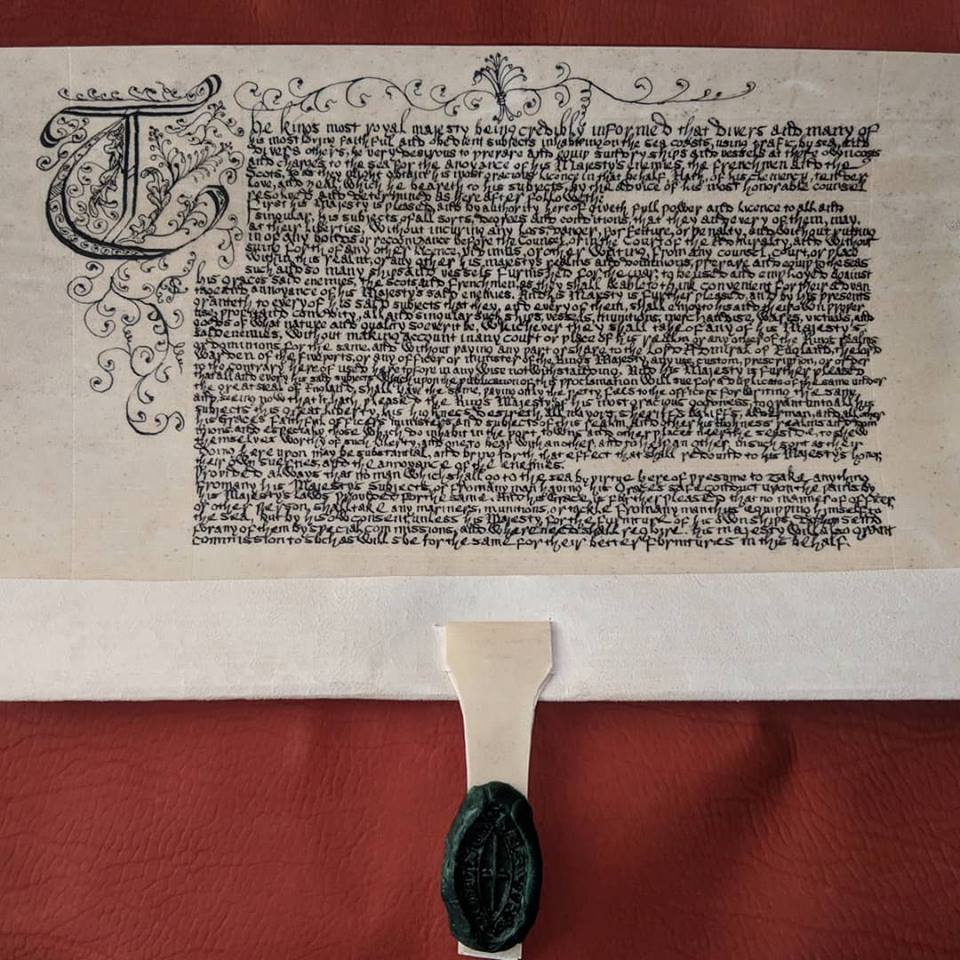 The kings most royal majesty being credibly informed that divers and many of
his most loving faithful and obedient subjects inhabiting on the sea coasts, using trafic by sea, and
divers others, be very desyrous to prepare and equip sundry ships and vessels at theyr own costs
and charges to the sea for the anoyance of his Majesty's enemies, the Frenchmen and the
Scots, so as they might obtain his most gracious licence in that behalf. Hath, of his clemency, tender
Love, and zeal, which he beareth to his subjects, by the advice of his most honorable counsel
resolved and determined as hereafter Followeth:
First his Majesty is pleased and by authority hereof giveth full power and licence to all and
singular, his subjects of all sorts, degrees and conditions, that they and every of them, may,
at their liberties, without incuring any Loss, Danger, Forfeiture, or penalty, and without putting
in of any bonds or recognizance before the Counsel, or in the Court of the Admiralty, and without
suing Forth of any other licence, vidimus, or other writing from any counsel, court, or place
within this realm, or any other his majestys realms and dominions, prepare and equip to the seas
such and so many ships and vessels furnished for the war, to be used and employed against
his Graces said enemies, the Scots and Frenchmen, as they shall be able to think convenient for their advan
tage and annoyance of his Majestys said enemies. And his Majesty is Further pleased, and by his presents
granteth to every of his said subjects that they, and every of them, shall enjoy to his and their own proper
use, profit and comodity, all and singular such ships, vessels, munitions, merchandise, wares, victuals, and
goods of what nature and quality soever it be, whichever they shall take of any of his Majesty's
said enemies, without making account in any court or place of this realm or any other of the Kings realms
or dominions for the same, and without paying any part or share to the Lord Admiral of England, the Lord
Warden of the Five ports, or any officer or minister of the Kings Majesty, any use, custom, prescription, or order
to the contrary hereof used heretofore in any wise notwithstanding. And his Majesty is further pleased
that all and every his said subjects which upon the publication of this proclamation will sue for a duplicate of the same under
the great seal of England shall have the same, paying only the petty Fals to the officers for writing the same.
and seeing now that it hath pleased the Kings Majesty of his most gracious goodness, to grant unto all his
subjects this great liberty, his highness desireth all mayors, sheriffs, bailiffs, alderman, and all other
his Graces Faithful officers ministers and subjects of this realm, and other his highness realms and dom
inions, and especially those which do inhabit in the port towns and other places near the seaside, to shew
themselves worthy of such liberty, and one to bear with another, and to help an other, in such sort as their
doing here upon may be substantial, and bring forth that effect that shall redound to his Majestys honor,
their own sureties, and the annoyance of the enemies.
Provided always that no man which shall go to the sea by virtue hereof presume to take anything
from any his Majestys subjects, or from any man having his Graces safe conduct upon the pains by
his Majestys laws provided for the same. And his Grace is further pleased that no manner of officer
or other person, shall take any mariners, munitions, or tackle from any man thus equipping himself to
the sea, but by his own consent, unless his Majesty for the furniture of his own ships send
for any of them by special commissions, and where need shall require. his majesty will also grant
commission to such as will sue for the same for their better furnitures in this behalf.